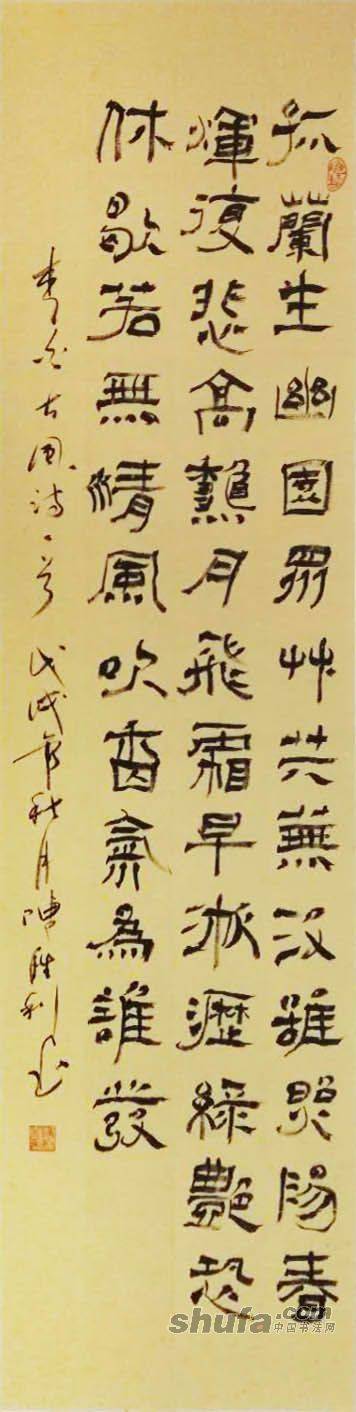 孤蘭生幽園眾艸共蕪没雖照陽春
煇復悲高龝月飛霜早淅瀝綠艷恐
休歇若無清風吹香氣為誰發
李白古風詩一首 戊戌年秋月陳胜利书
shufa.com
中国书法网